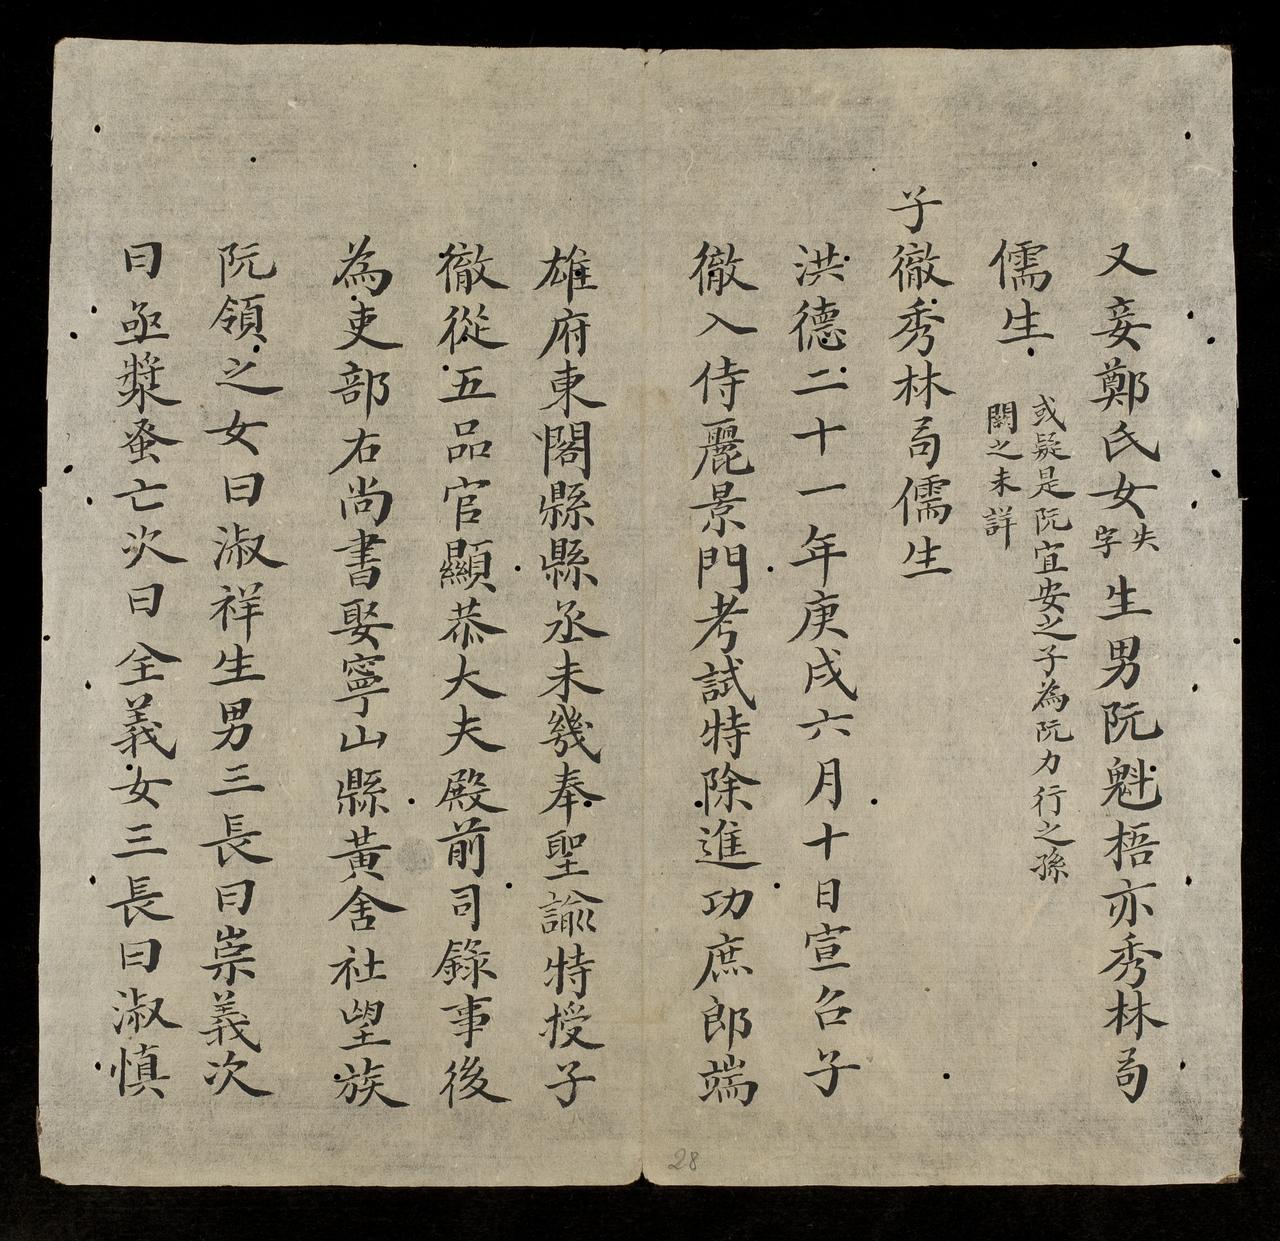 又妾鄭氏女失字生男阮魁梧亦秀林局
儒生
或疑是阮宜安之子為阮力行之孫
闕之未詳
子徹秀林局儒生
洪德二十一年庚戌六月十日宣召子
徹入侍麗景門考試特除進功庶郎端
雄府東閣縣縣丞未幾奉聖諭特授子
徹從五品官顯恭大夫殿前司錄事後
為吏部右尚書娶寧山縣黃舍社望族
阮領之女曰淑祥生男三長曰崇義次
曰亟漿蚤亡次曰全義女三長曰淑慎
28